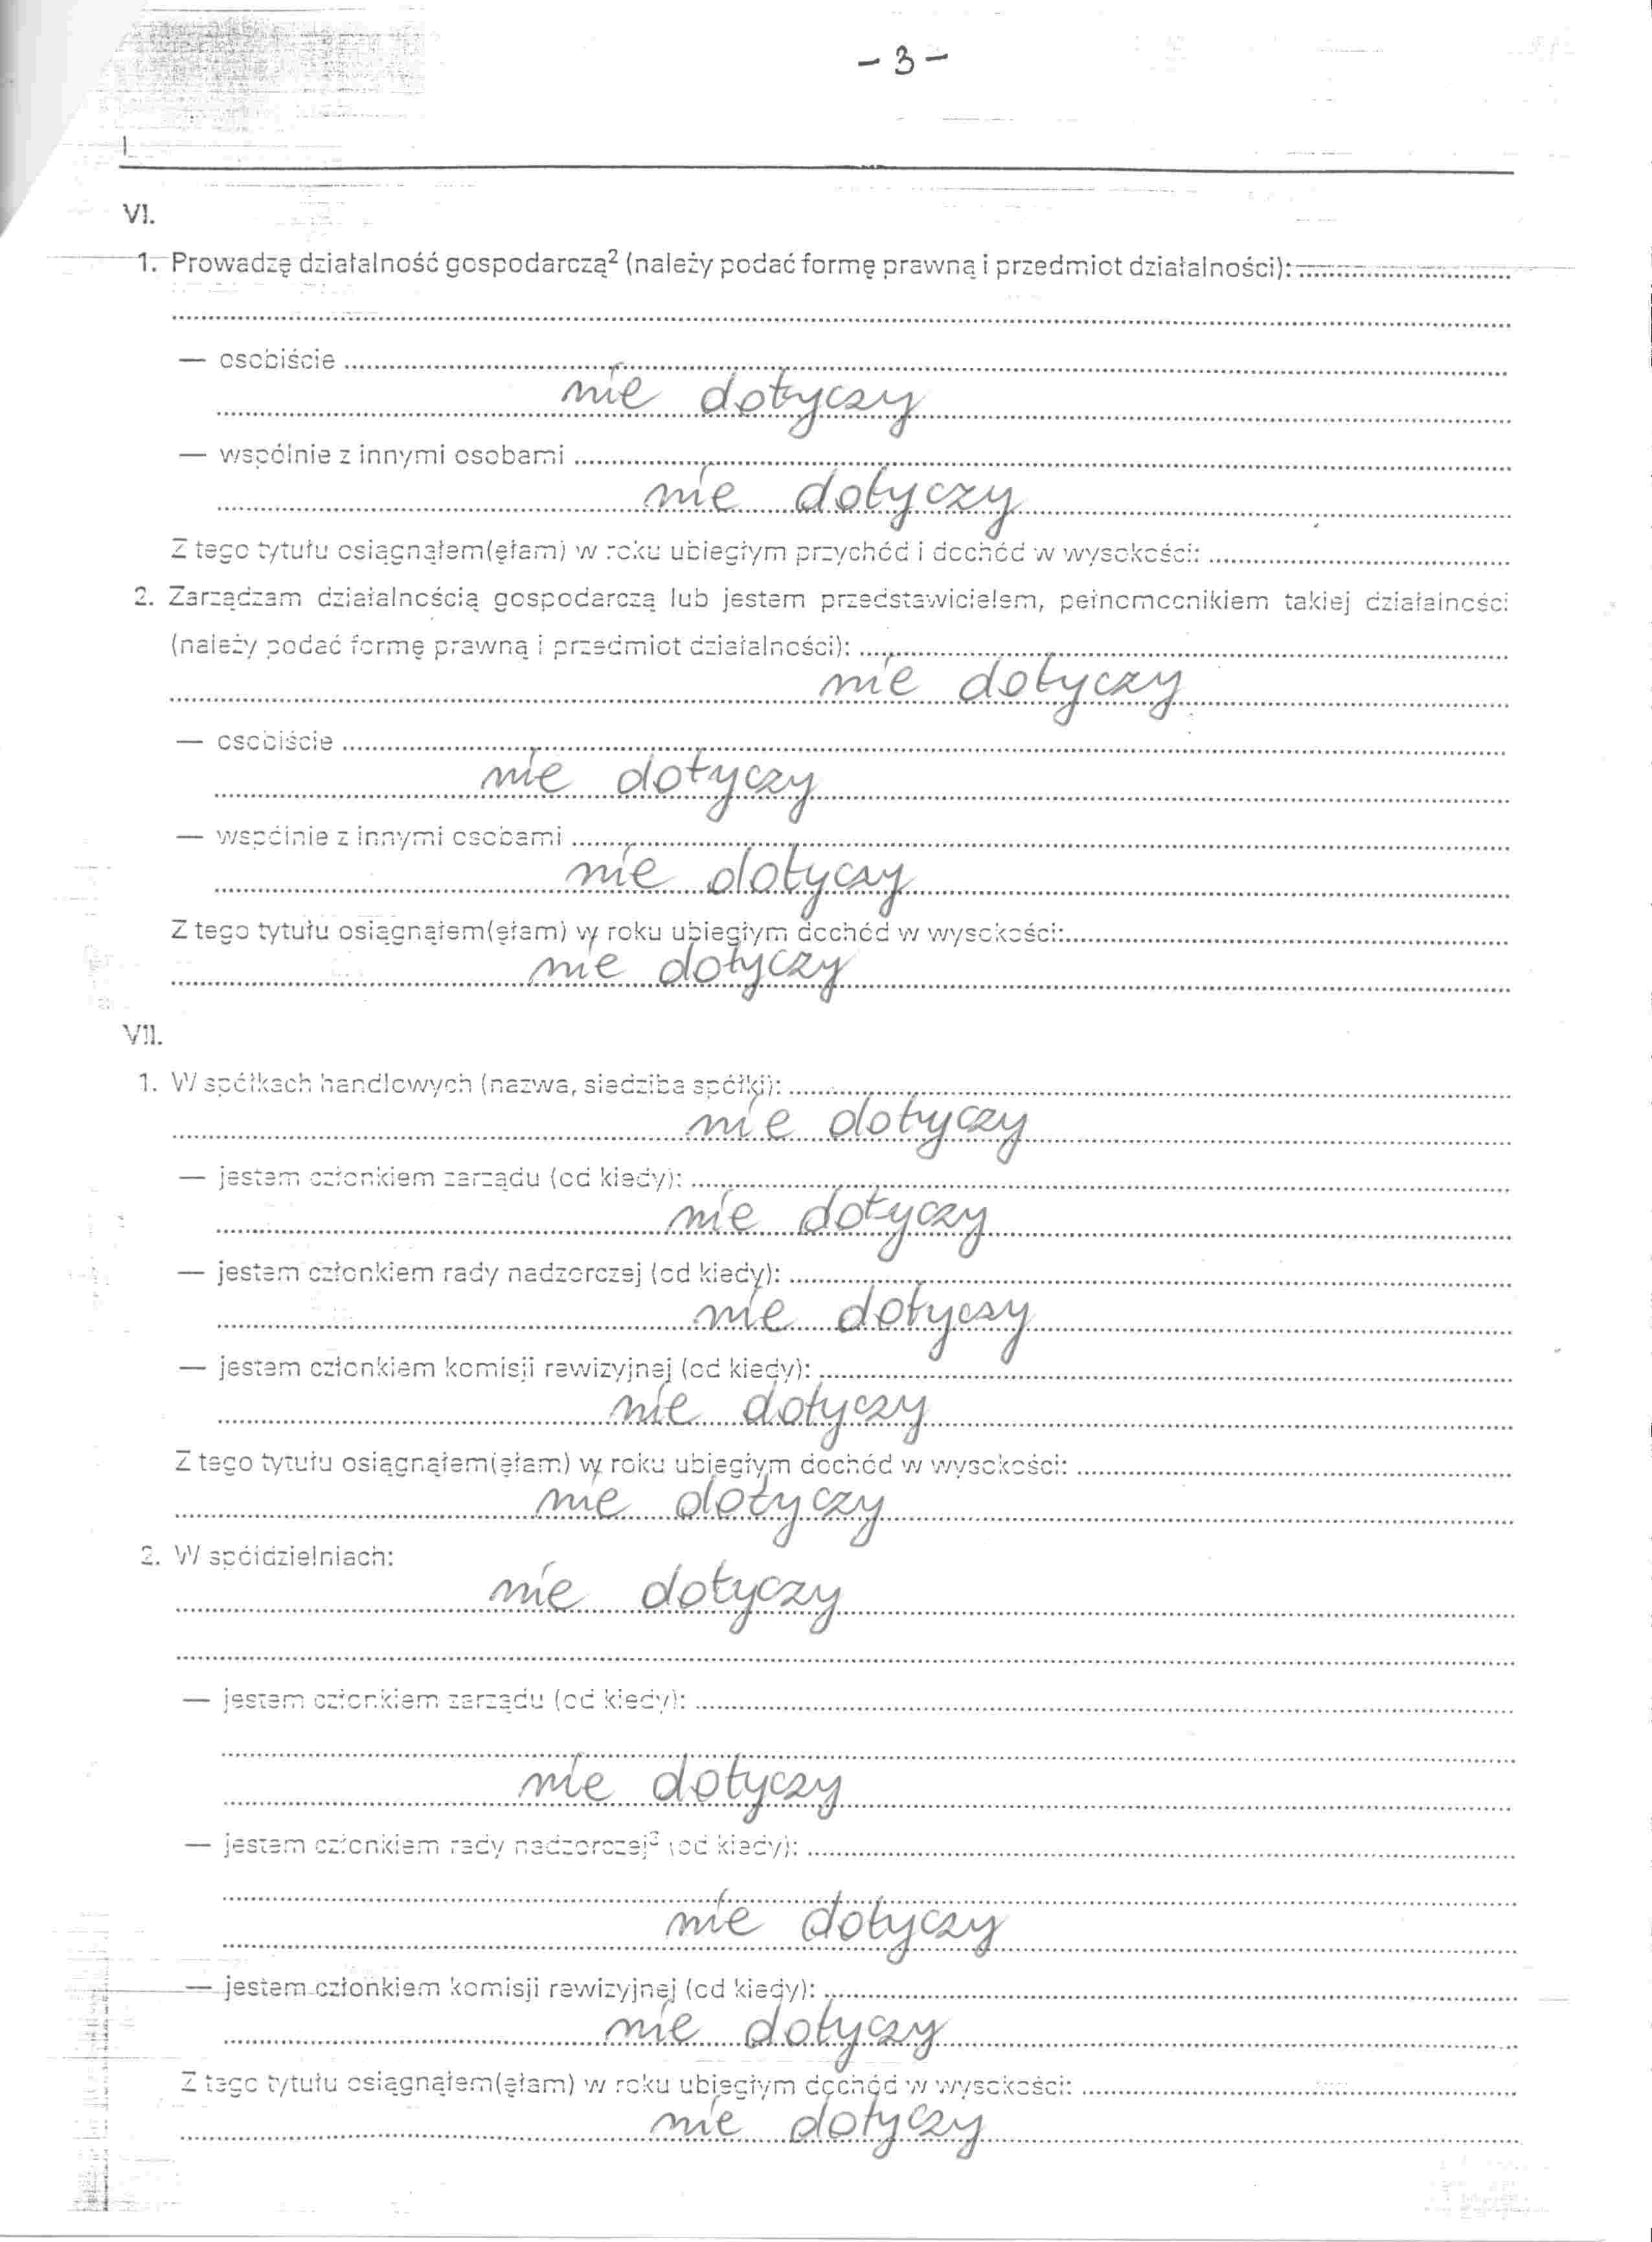 - 3 -
VI.
1. Prowadzę działalność gospodarczą² (należy podać formę prawną i przedmiot działalności):
— osobiście
nie dotyczy
— wspólnie z innymi osobami
nie dotyczy
Z tego tytułu osiągnąłem(ęłam) w roku ubiegłym przychód i dochód w wysokości:
2. Zarządzam działalnością gospodarczą lub jestem przedstawicielem, pełnomocnikiem takiej działalności
(należy podać formę prawną i przedmiot działalności):
nie dotyczy
— osobiście
nie dotyczy
— wspólnie z innymi osobami
nie dotyczy
Z tego tytułu osiągnąłem(ęłam) w roku ubiegłym dochód w wysokości:
nie dotyczy
VII.
1. W spółkach handlowych (nazwa, siedziba spółki):
nie dotyczy
— jestem członkiem zarządu (od kiedy):
nie dotyczy
— jestem członkiem rady nadzorczej (od kiedy):
nie dotyczy
— jestem członkiem komisji rewizyjnej (od kiedy):
nie dotyczy
Z tego tytułu osiągnąłem(ęłam) w roku ubiegłym dochód w wysokości:
nie dotyczy
2. W spółdzielniach:
nie dotyczy
— jestem członkiem zarządu (od kiedy):
nie dotyczy
— jestem członkiem rady nadzorczej³ (od kiedy):
nie dotyczy
— jestem członkiem komisji rewizyjnej (od kiedy):
nie dotyczy
Z tego tytułu osiągnąłem(ęłam) w roku ubiegłym dochód w wysokości:
nie dotyczy